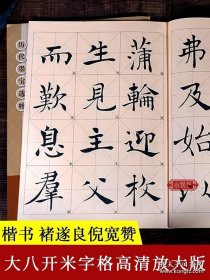 弗及始以
蒲輪迎枚
生見主父
而歎息羣
历代墨宝选粹
楷书 褚遂良倪宽赞
大八开米字格高清放大版